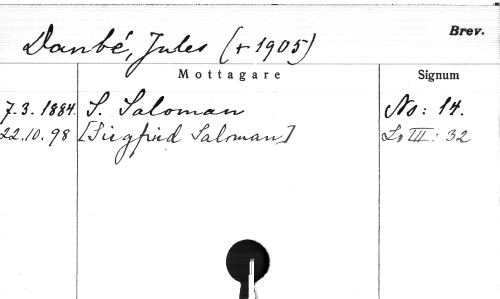 Danbé, Jules (+1905) Brev.
Mottagare Signum
7.3.1884. S. Saloman No: 14.
22.10.98 [Siegfried Saloman] Lo III: 32